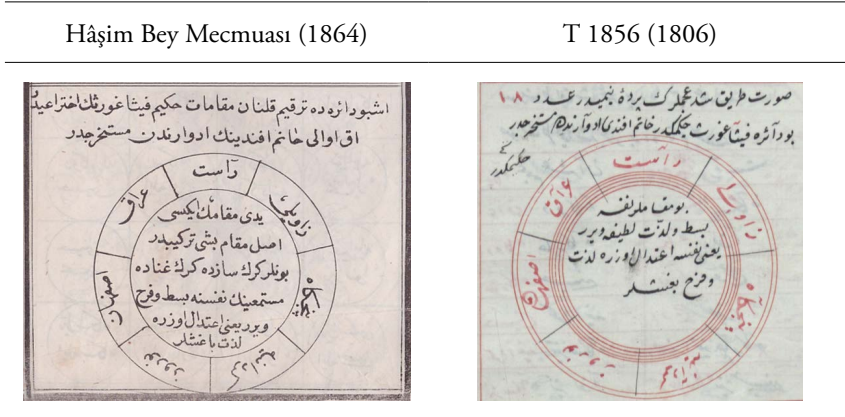 Hâşim Bey Mecmuası (1864)
T 1856 (1806)
اشبو دائره ده ترقيم قلنان مقامات حكيم فيثاغورثك اختراعيدر
اق اوالى حاتم افندينك ادوارندن مستخرجدر
رآست
زاويلى
پنجگاه
گردانيه
نوروز
اصفهان
عراق
يدى مقامك ايكيسى
اصل مقام بشى تركيبدر
بونلر كرك سازده كرك غناده
مستمعينك نفسنه بسط وفرح
ويرر يعنى اعتدال اوزره
لذت باغشلر
صورت طريق شد عجملرك پردۀ نيميدر عدد ١٨
بو دآئره فيثاغورث حكيمكدر حاتم افندى ادوارندن مستخرجدر
رآست
زاويلى
پنجگاه
نوروز
اصفهان
عراق
بو مقاملر نفسه
بسط ولذت لطيفه ويرر
يعنى نفسه اعتدال اوزره لذت
وفرح بغشلر